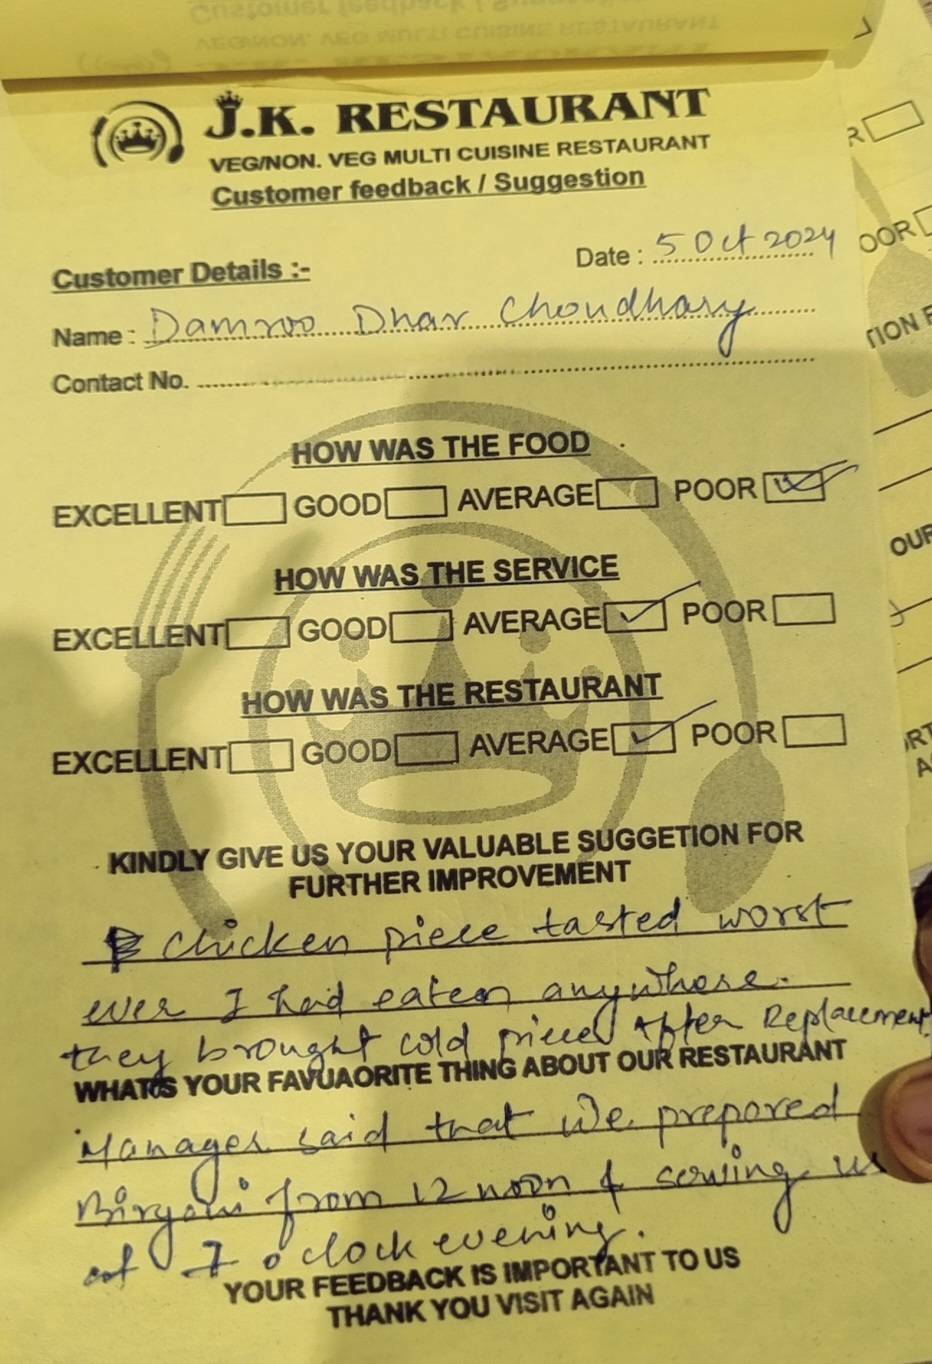 J.K. RESTAURANT
VEG/NON. VEG MULTI CUISINE RESTAURANT
Customer feedback / Suggestion
Date : 5 Oct 2024
Customer Details :-
Name : Damroo Dhar Choudhary
Contact No.
HOW WAS THE FOOD
EXCELLENT GOOD AVERAGE POOR
HOW WAS THE SERVICE
EXCELLENT GOOD AVERAGE POOR
HOW WAS THE RESTAURANT
EXCELLENT GOOD AVERAGE POOR
KINDLY GIVE US YOUR VALUABLE SUGGETION FOR
FURTHER IMPROVEMENT
chicken piece tasted worst
ever I had eaten anywhere.
they brought cold pieces After Replacement
WHAT'S YOUR FAVUAORITE THING ABOUT OUR RESTAURANT
Manager said that we prepared
Biryani from 12 noon & serving us
at 7 o clock evening.
YOUR FEEDBACK IS IMPORTANT TO US
THANK YOU VISIT AGAIN